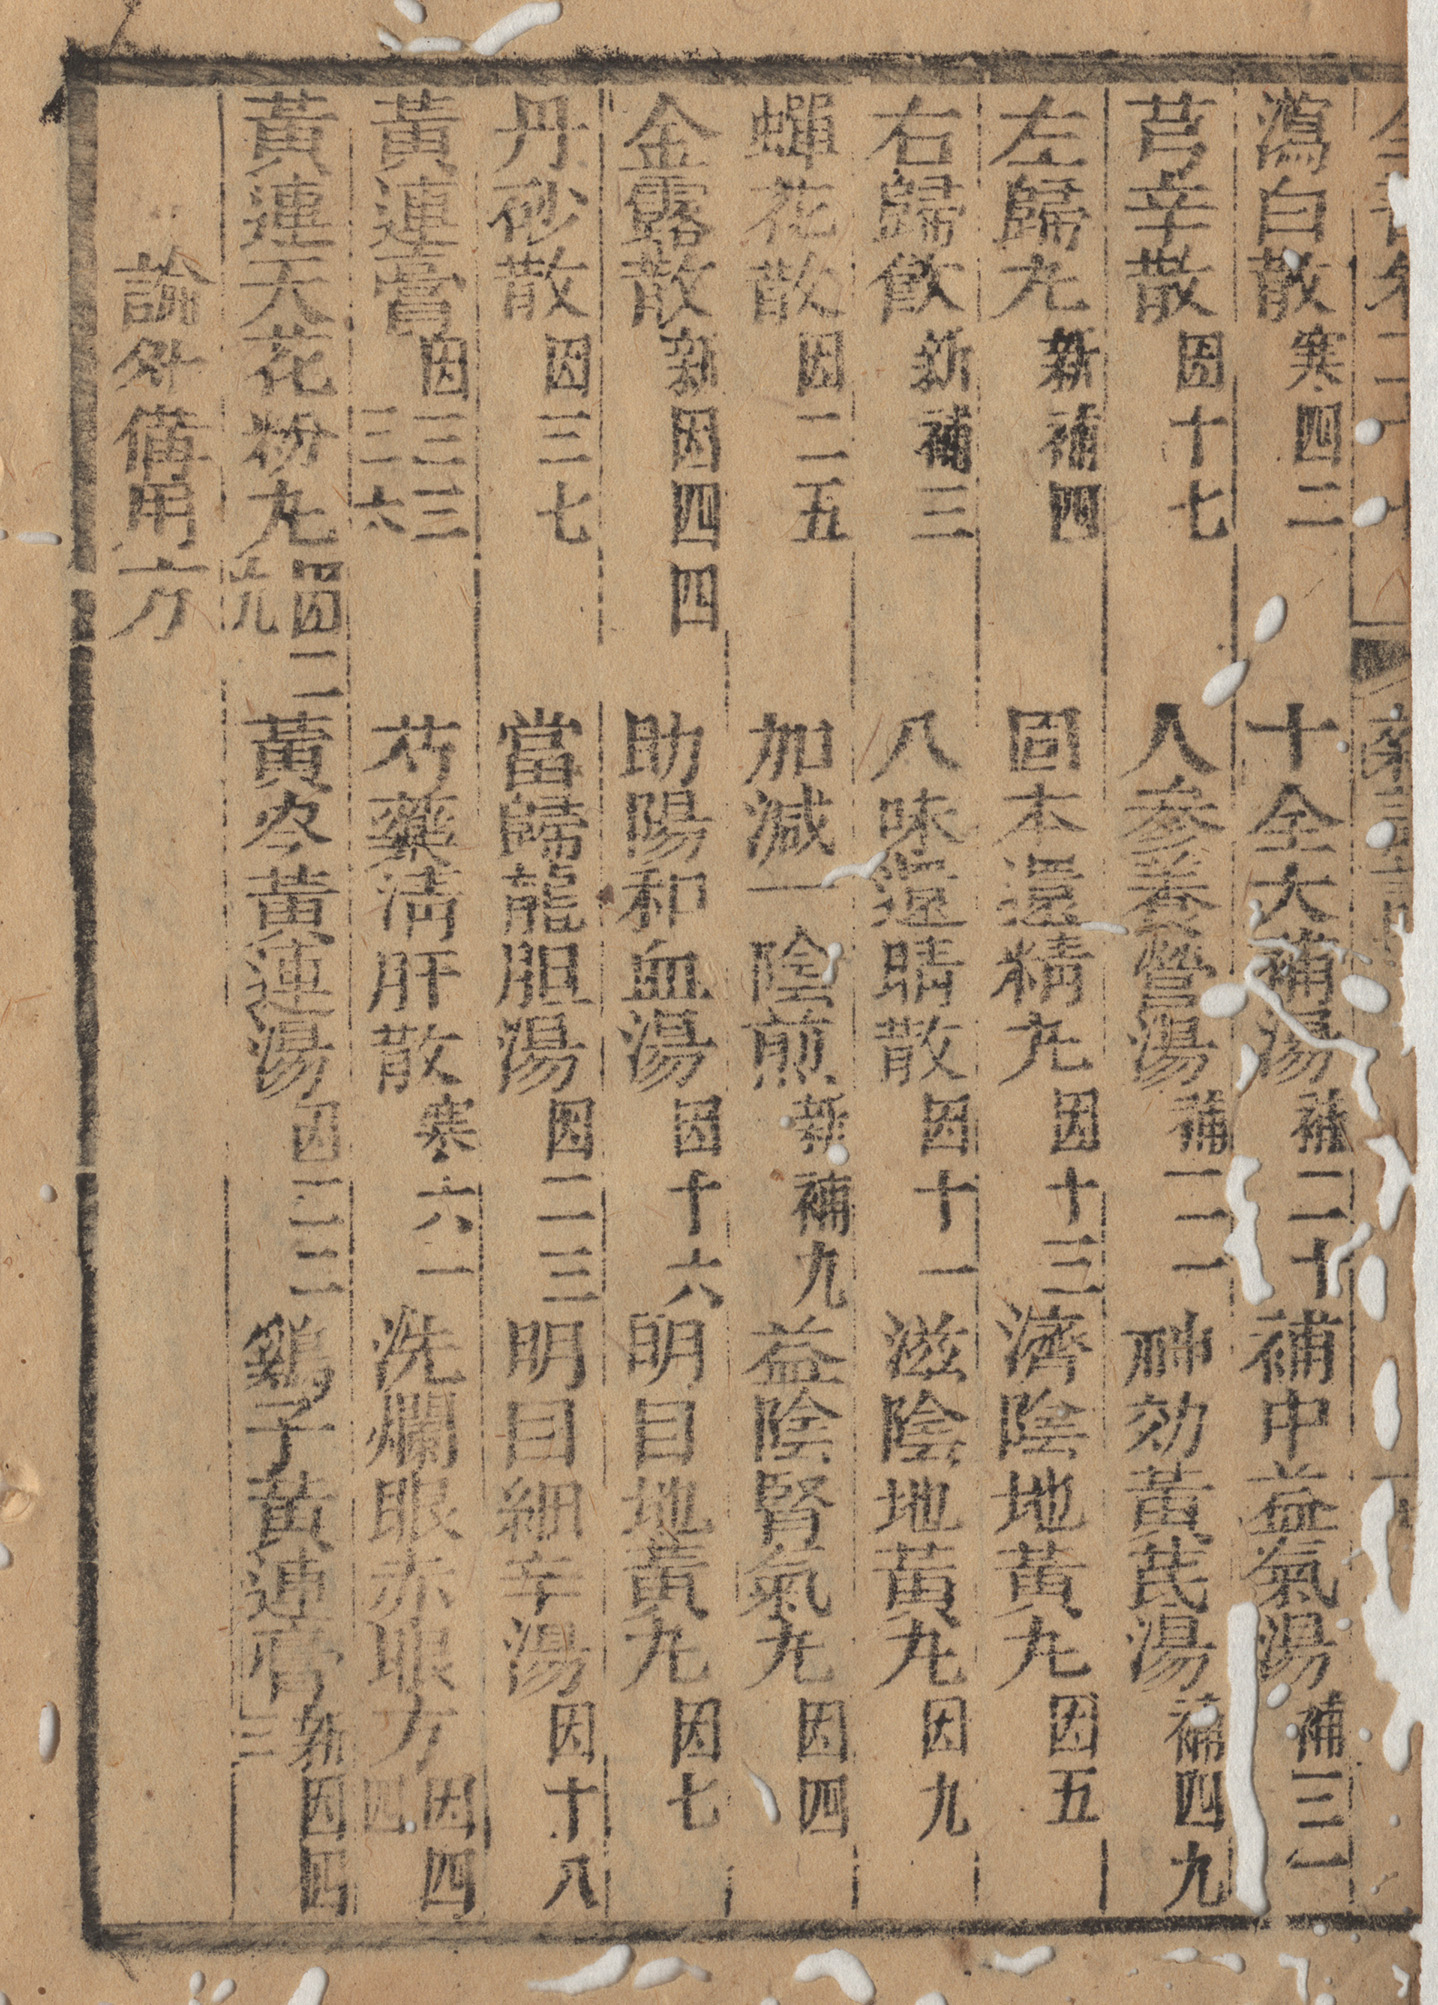 瀉白散寒四二 十全大補湯補二十 補中益氣湯補三一
芎辛散因十七 人參養營湯補二一 神効黃芪湯補四九
左歸丸新補四 固本還精丸因十三 濟陰地黃丸因五
右歸飲新補三 八味還睛散因十一 滋陰地黃丸因九
蟬花散因二五 加減一陰煎新補九 益陰腎氣丸因四
金露散新因四四 助陽和血湯因十六 明目地黃丸因七
丹砂散因三七 當歸龍胆湯因二三 明目細辛湯因十八
黃連膏因三三三六 芍藥清肝散寒六一 洗爛眼赤眼方因四四
黃連天花粉丸因二九 黃芩黃連湯因二二 鷄子黃連膏新因四三
論外備用方